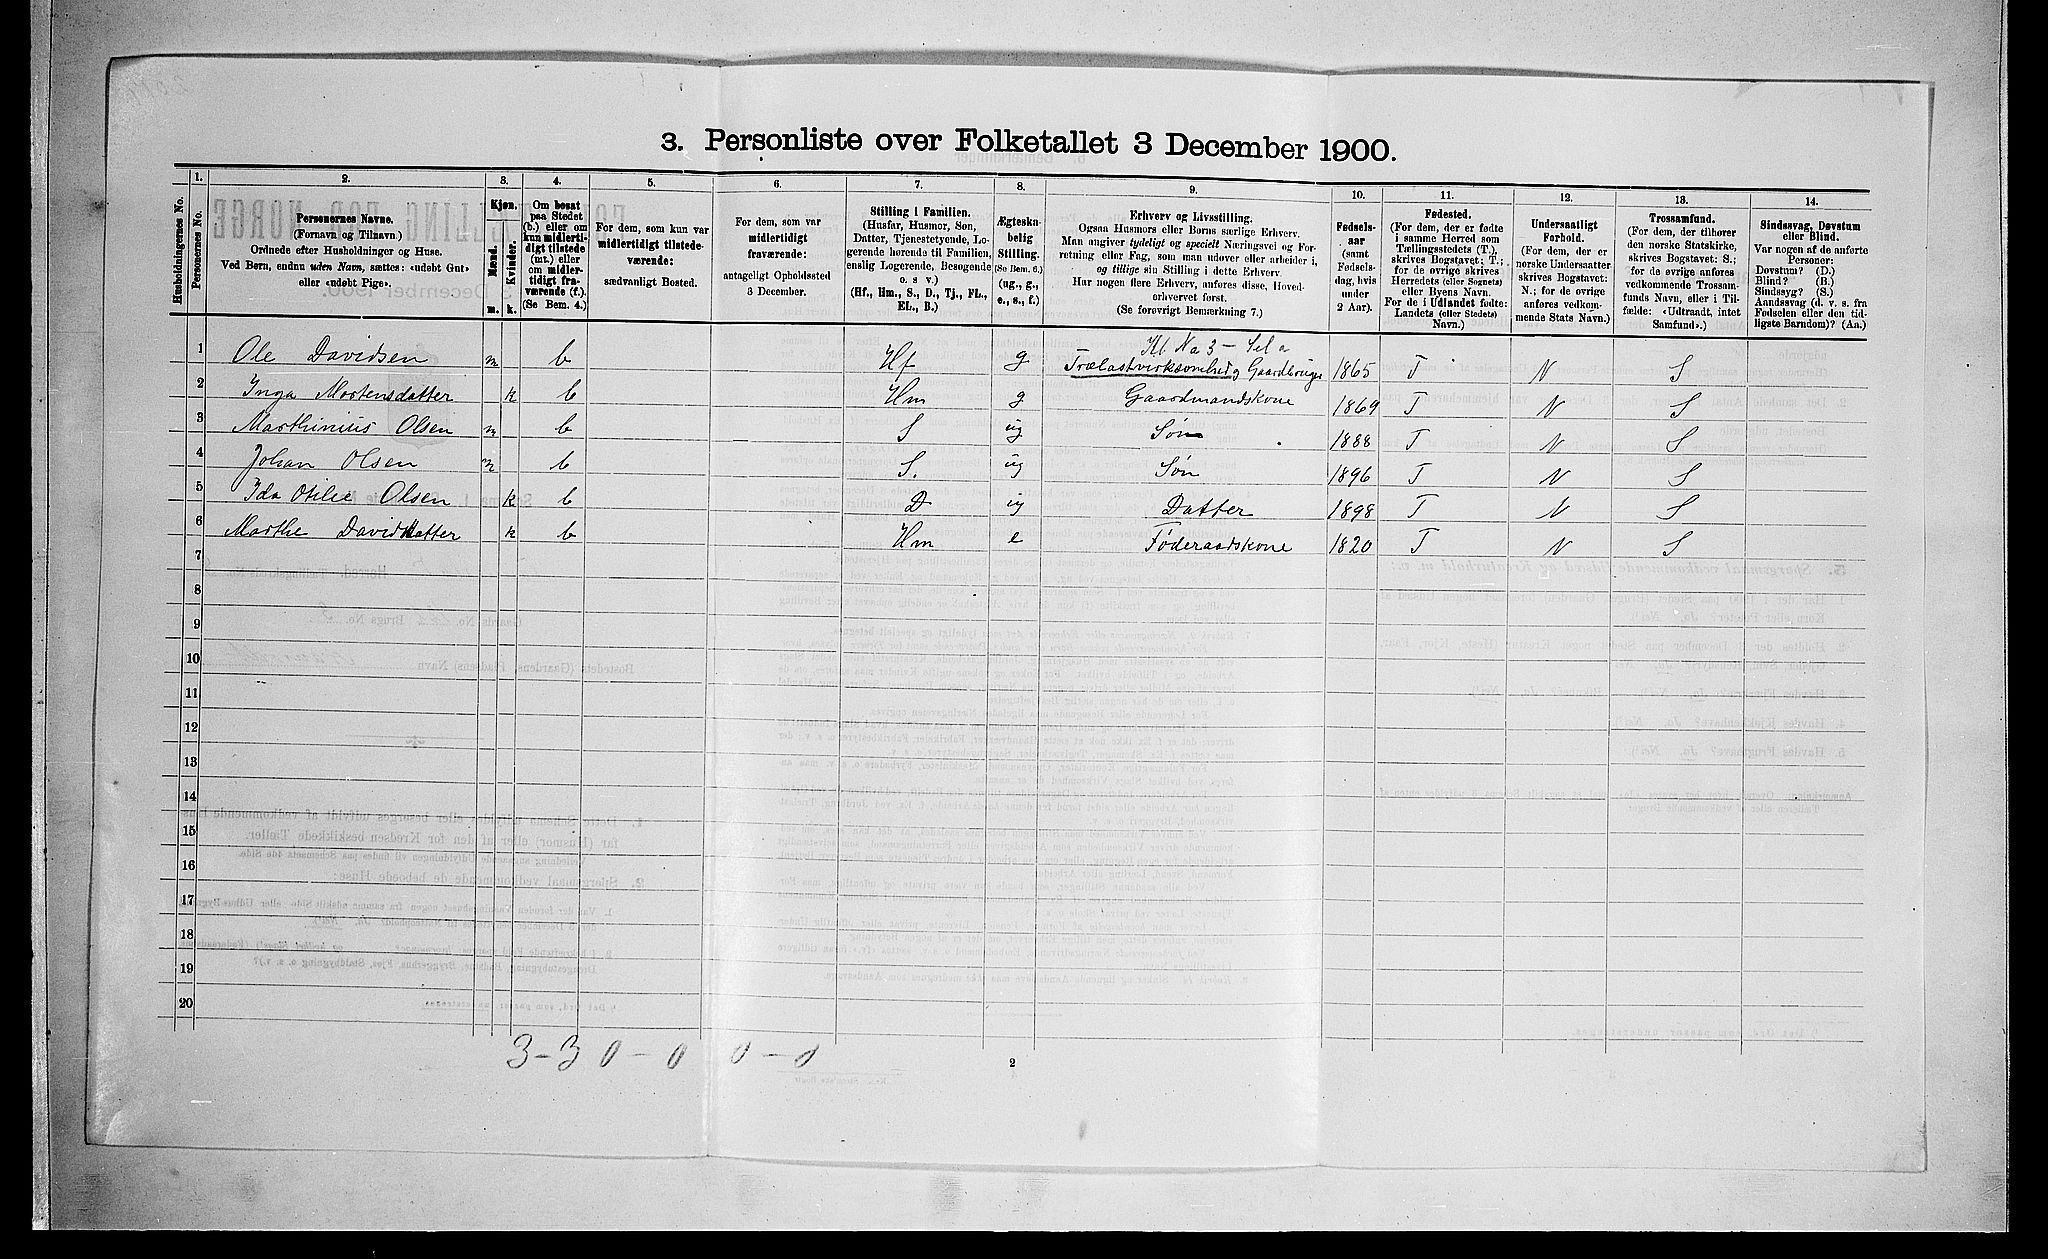 3. Personliste over Folketallet 3 December 1900.
1. 2. 3. 4. 5. 6. 7. 8. 9. 10. 11. 12. 13. 14.
Husholdningernes No.
Personernes No.
Personernes Navne.
(Fornavn og Tilnavn.)
Ordnede efter Husholdninger og Huse.
Ved Børn, endnu uden Navn, sættes: «udøbt Gut»
eller «udøbt Pige».
Kjøn.
Mænd.
Kvinder.
m. k.
Om bosat
paa Stedet
(b.) eller om
kun midlerti-
digt tilstede
(mt.) eller
om midler-
tidigt fra-
værende (f.).
(Se Bem. 4.)
For dem, som kun var
midlertidigt tilstede-
værende:
sædvanligt Bosted.
For dem, som var
midlertidigt
fraværende:
antageligt Opholdssted
3 December.
Stilling i Familien.
(Husfar, Husmor, Søn,
Datter, Tjenestetyende, Lo-
gerende hørende til Familien,
enslig Logerende, Besøgende
o. s v.)
(Hf., Hm., S., D., Tj., FL.,
EL., B.)
Ægteska-
belig
Stilling.
(Se Bem. 6.)
(ug., g.,
e., s., f.)
Erhverv og Livsstilling.
Ogsaa Husmors eller Børns særlige Erhverv.
Man angiver tydeligt og specielt Næringsvei og For-
retning eller Fag, som man udøver eller arbeider i,
og tillige sin Stilling i dette Erhverv.
Har nogen flere Erhverv, anføres disse, Hoved-
erhvervet først.
(Se forøvrigt Bemærkning 7.)
Fødsels-
aar
(samt
Fødsels-
dag, hvis
under
2 Aar).
Fødested.
(For dem, der er fødte
i samme Herred som
Tællingsstedets (T.),
skrives Bogstavet: T.;
for de øvrige skrives
Herredets (eller Sognets)
eller Byens Navn.
For de i Udlandet fødte:
Landets (eller Stedets)
Navn.)
Undersaatligt
Forhold.
(For dem, der er
norske Undersaatter
skrives Bogstavet:
N.; for de øvrige
anføres vedkom-
mende Stats Navn.)
Trossamfund.
(For dem, der tilhører
den norske Statskirke,
skrives Bogstavet: S.;
for de øvrige anføres
vedkommende Trossam-
funds Navn, eller i Til-
fælde: «Udtraadt, intet
Samfund».)
Sindssvag, Døvstum
eller Blind.
Var nogen af de anførte
Personer:
Døvstum? (D.)
Blind? (B.)
Sindssyg? (S.)
Aandssvag (d. v. s. fra
Fødselen eller den tid-
ligste Barndom)? (Aa.)
Kl No 3 -
1 Ole Davidsen m b Hf g Trælastvirksomhed g Gaardbruger 1865 T N S
2 Inga Mortensdatter k b Hm g Gaardmandskone 1869 T N S
3 Marthinius Olsen m b S ug Søn 1888 T N S
4 Johan Olsen m b S. ug Søn 1896 T N S
5 Ida Otilie Olsen k b D ug Datter 1898 T N S
6 Marthe Davidsdatter k b Hm e Føderaadskone 1820 T N S
7
8
9
10
11
12
13
14
15
16
17
18
19
20
3-3 0-0 0-0
2